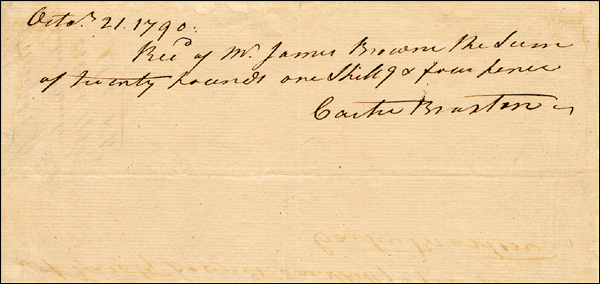 Octo.r 21. 1790.
Rec.d of Mr. James Brown the Sum
of twenty pounds one Shill.g & four pence
Carter Braxton